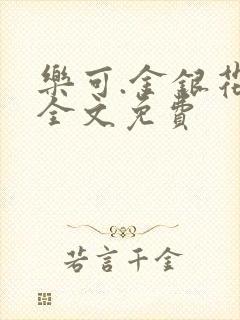 樂可.金銀花
全文免費
若言千金